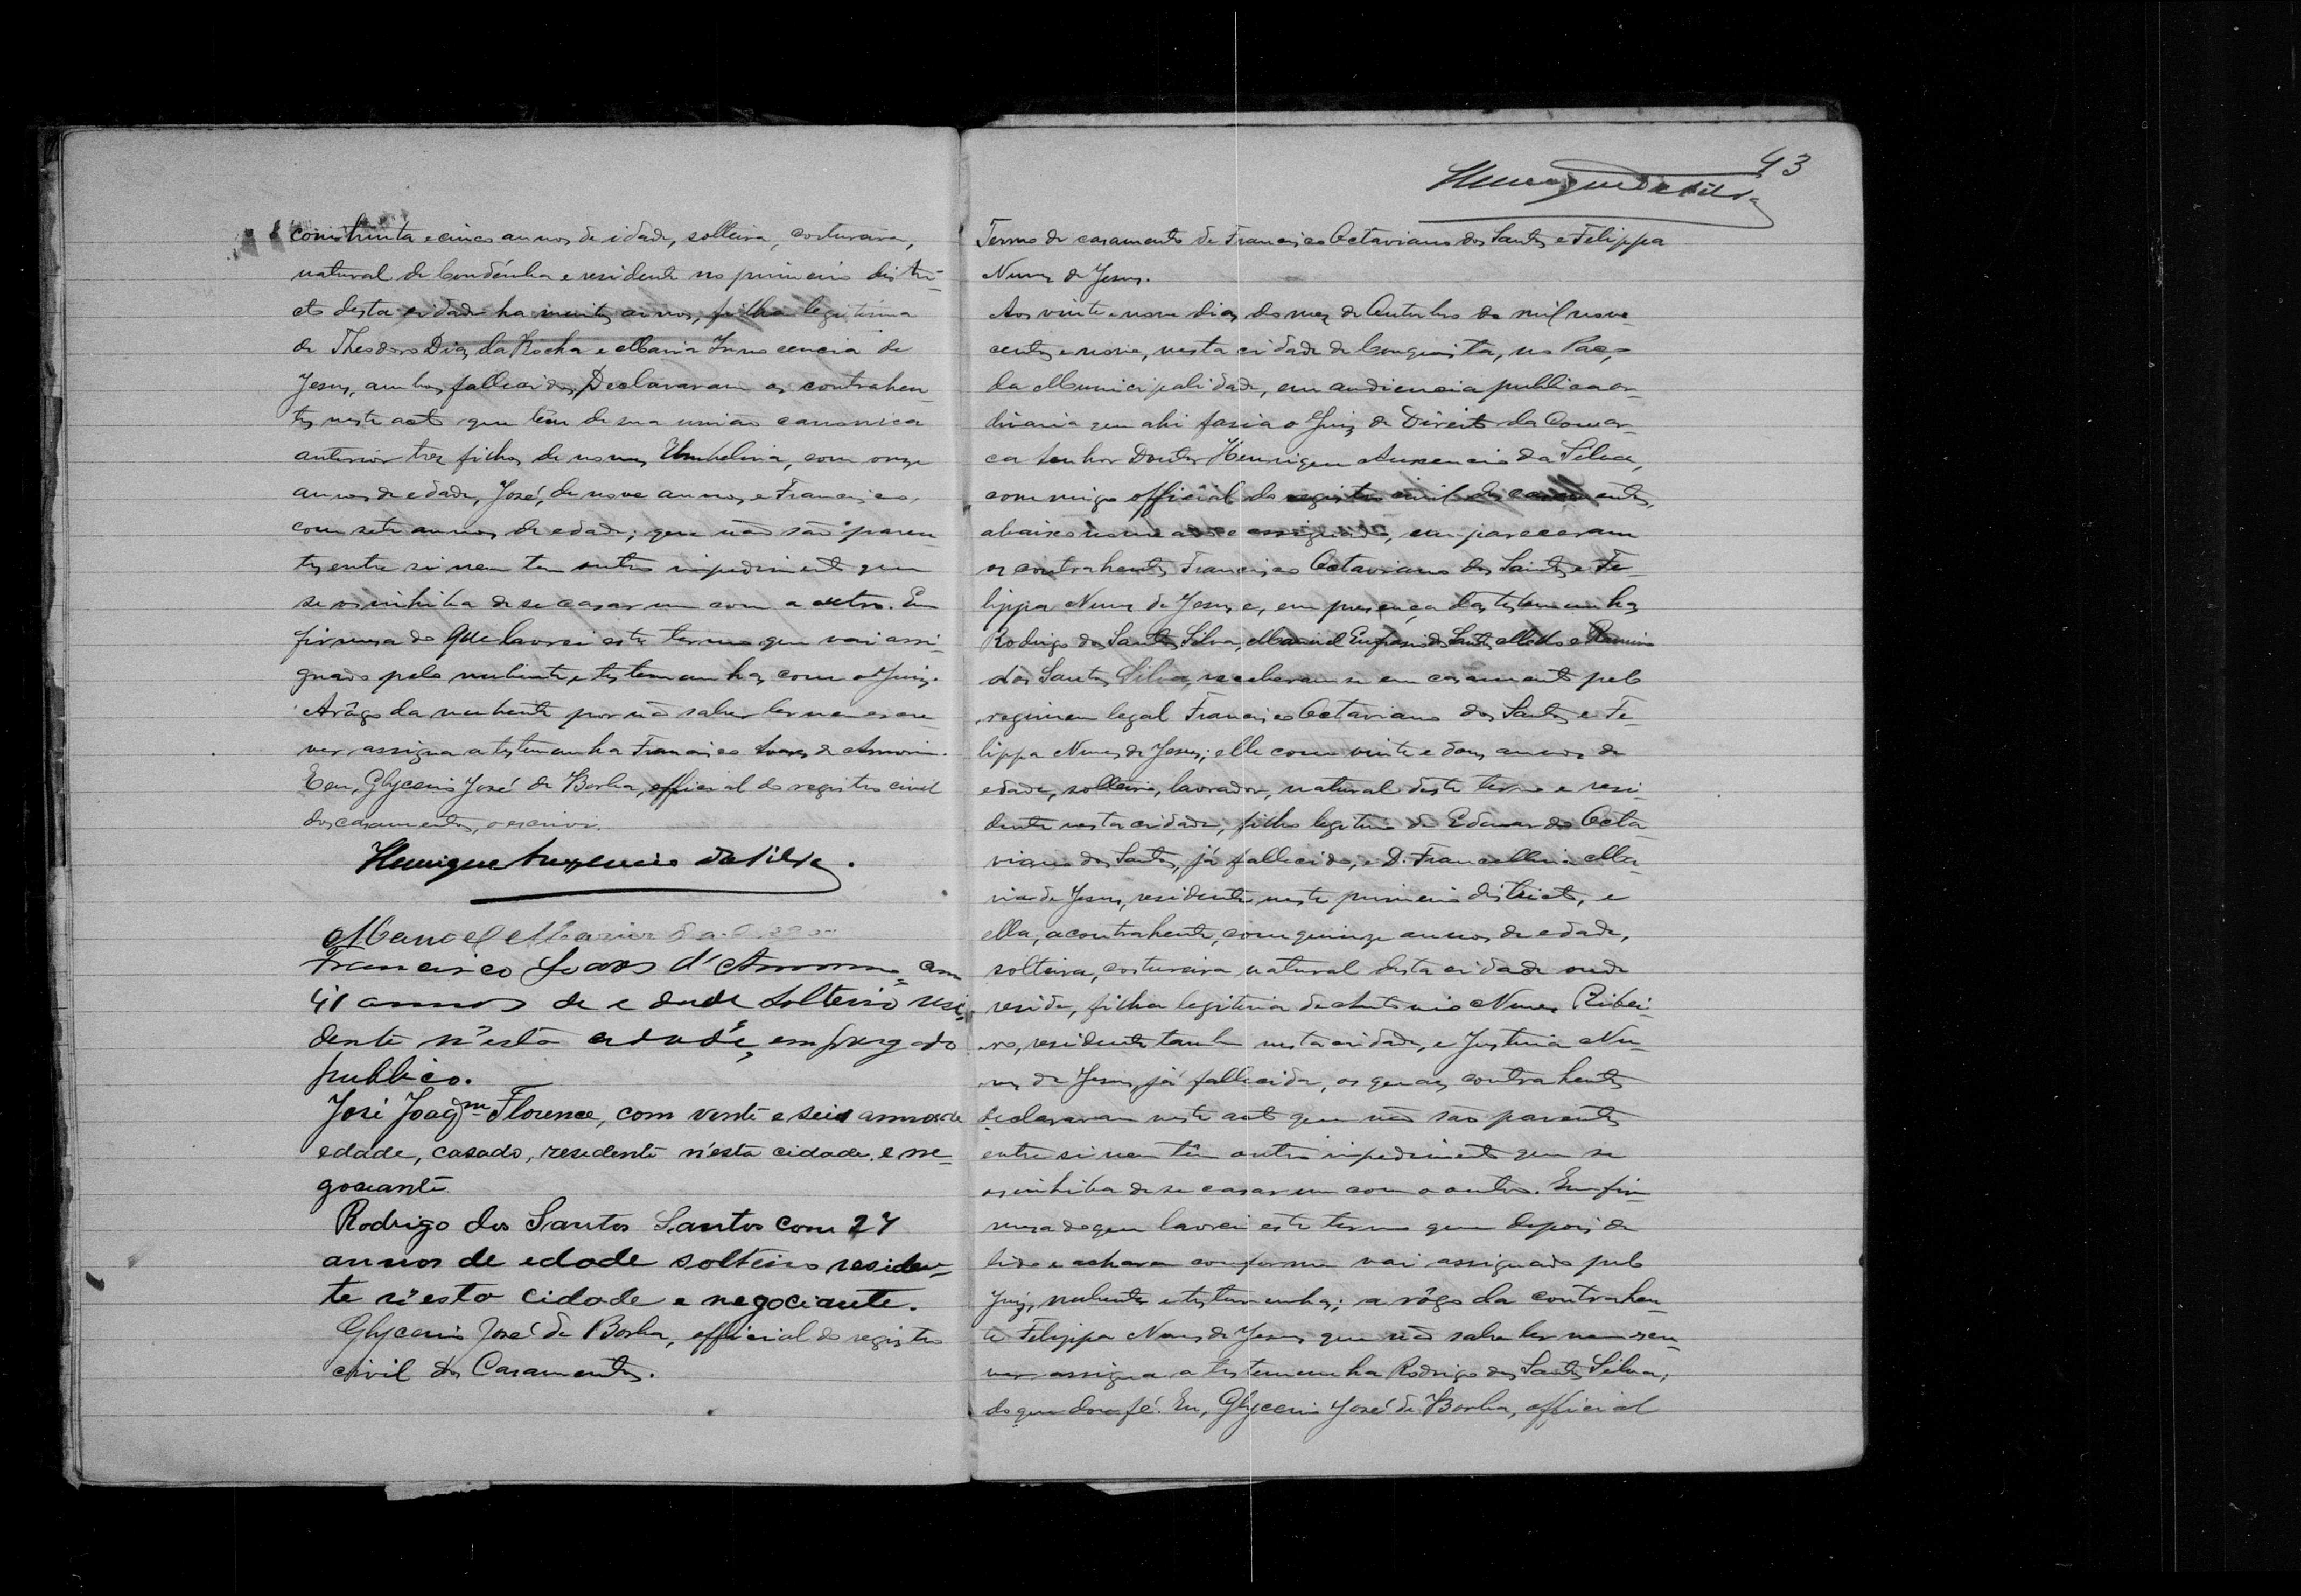 com trinta e cinco annos de idade, solteira, costureira,
natural de Condéuba e residente no primeiro distri-
cto desta cidade ha muitos annos, filha legitima
de Theodoro Dias da Rocha e Maria Innocencia de
Jesus, ambos fallecidos. Declararam os contrahen-
tes neste acto que têm de sua união canonica
anterior tres filhos de nomes Umbelina, com onze
annos de edade, José, de nove annos, e Francisco,
com sete annos de edade; que não são paren-
tes entre si nem tem outro impedimento que
se os inhiba de se casar um com a outro. Em
firmesa do que lavrei este termo que vai assi-
gnado pelo nubente e testemunhas com o Juiz.
A rôgo da nubente por não saber ler nem escre
ver assigna a testemunha Francisco Soares de Amorim.
E eu, Glycerio José de Borba, official do registro civil
dos casamentos, o escrivi.
Henrique Auxencio da Silva.
Manoel Maria da
Francisco Soares d'Amorim, com
41 annos de edade solteiro resi-
dente n'esta cidade, empregado
publico.
José Joaqm Florence, com vente e seis annos de
edade, casado, resedente n'esta cidade e ne-
goceante
Rodrigo dos Santos Santos com 24
annos de edade solteiro residen-
te n'esta cidade e negociante.
Glycerio José de Borba, official do registro
civil dos Casamentos.
43
Henrique da Silva
Termo de casamento de Francisco Octaviano dos Santos e Felippa
Nunes de Jesus.
Aos vinte e nove dias do mez de Outubro de mil nove-
centos e nove, nesta cidade de Conquista, no Paço
da Municipalidade, em audiencia publica or-
dinaria que ahi fasia o Juiz de Direito da Comar-
ca Senhor Doutor Henrique Auxencio da Silva,
commigo official do registro civil dos casamentos,
abaixo nomeado e assignado, compareceram
os contrahentes Francisco Octaviano dos Santos e Fe-
lippa Nunes de Jesus e, em presença das testemunhas
Rodrigo dos Santos Silva, Manoel Eufrasio dos Santos Mello e Ramiro
dos Santos Silva, receberam-se em casamento pelo
regimen legal Francisco Octaviano dos Santos e Fe-
lippa Nunes de Jesus; elle com vinte e dous annos de
edade, solteiro, lavrador, natural deste termo e resi-
dente nesta cidade, filho legitimo de Eduardo Octa-
viano dos Santos, já fallecido, e D. Francellina Ma-
ria de Jesus, residente neste primeiro districto, e
ella, a contrahente, com quinze annos de edade,
solteira, costureira, natural desta cidade onde
reside, filha legitima de Antonio Nunes Ribei-
ro, residente tambem nesta cidade, e Justina Nu-
nes de Jesus, já fallecida, os quaes contrahentes
declararam neste acto que não são parentes
entre si nem têm outro impedimento que se
os inhiba de se casar um com o outro. Em fir-
mesa do que lavrei este termo que depois de
lido e acharem conforme vai assignado pelo
Juiz, nubente e testemunhas; a rôgo da contrahen-
te Felippa Nunes de Jesus que não sabe ler nem escre-
ver assigna a testemunha Rodrigo dos Santos Silva,
do que dou fé. Eu, Glycerio José de Borba, official